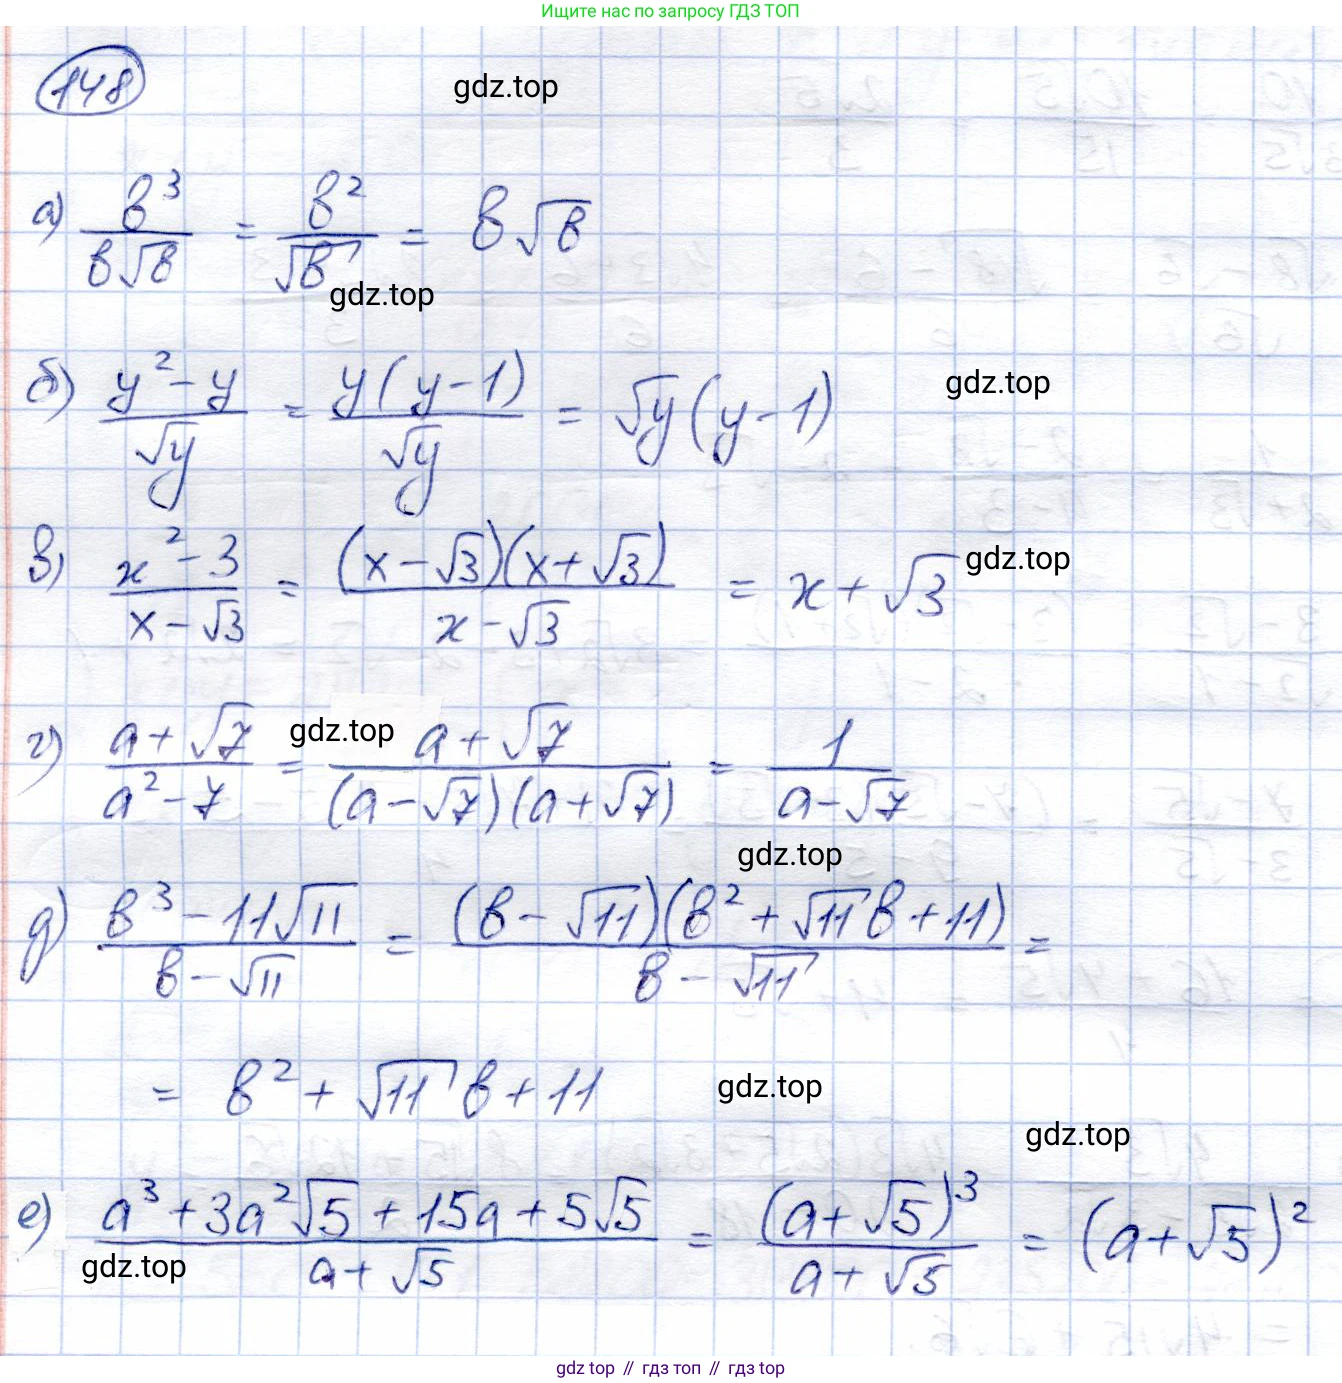 Ищите нас по запросу ГДЗ ТОП
148
gdz.top
а) b³/(b√b) = b²/√b = b√b
gdz.top
б) (y² - y)/√y = y(y - 1)/√y = √y(y - 1)
gdz.top
в) (x² - 3)/(x - √3) = (x - √3)(x + √3)/(x - √3) = x + √3
gdz.top
г) (a + √7)/(a² - 7) = (a + √7)/((a - √7)(a + √7)) = 1/(a - √7)
gdz.top
gdz.top
д) (b³ - 11√11)/(b - √11) = (b - √11)(b² + √11 b + 11)/(b - √11) =
= b² + √11 b + 11
gdz.top
gdz.top
е) (a³ + 3a²√5 + 15a + 5√5)/(a + √5) = (a + √5)³/(a + √5) = (a + √5)²
gdz.top
gdz top // гдз топ // гдз top